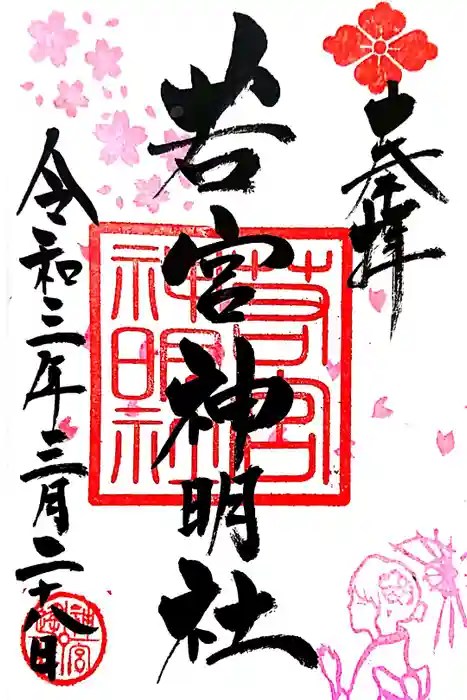 奉拝
若宮神明社
令和三年三月二十八日
若宮
神明社